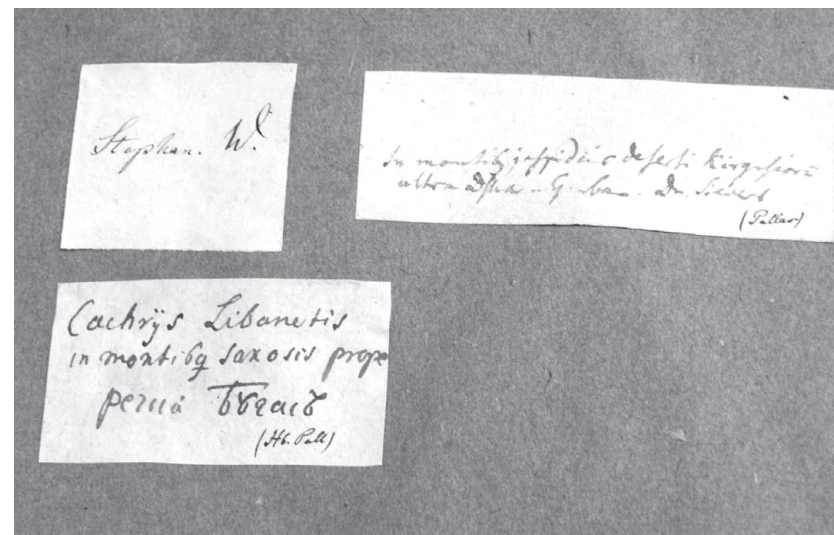 Stephan. W.
In montibq jaspideis deserti Kirgisiorū
ultra Dn. Sievers
(Pallas)
Cachrÿs Libanotis
in montibq saxosis prope
(Hb. Pall)